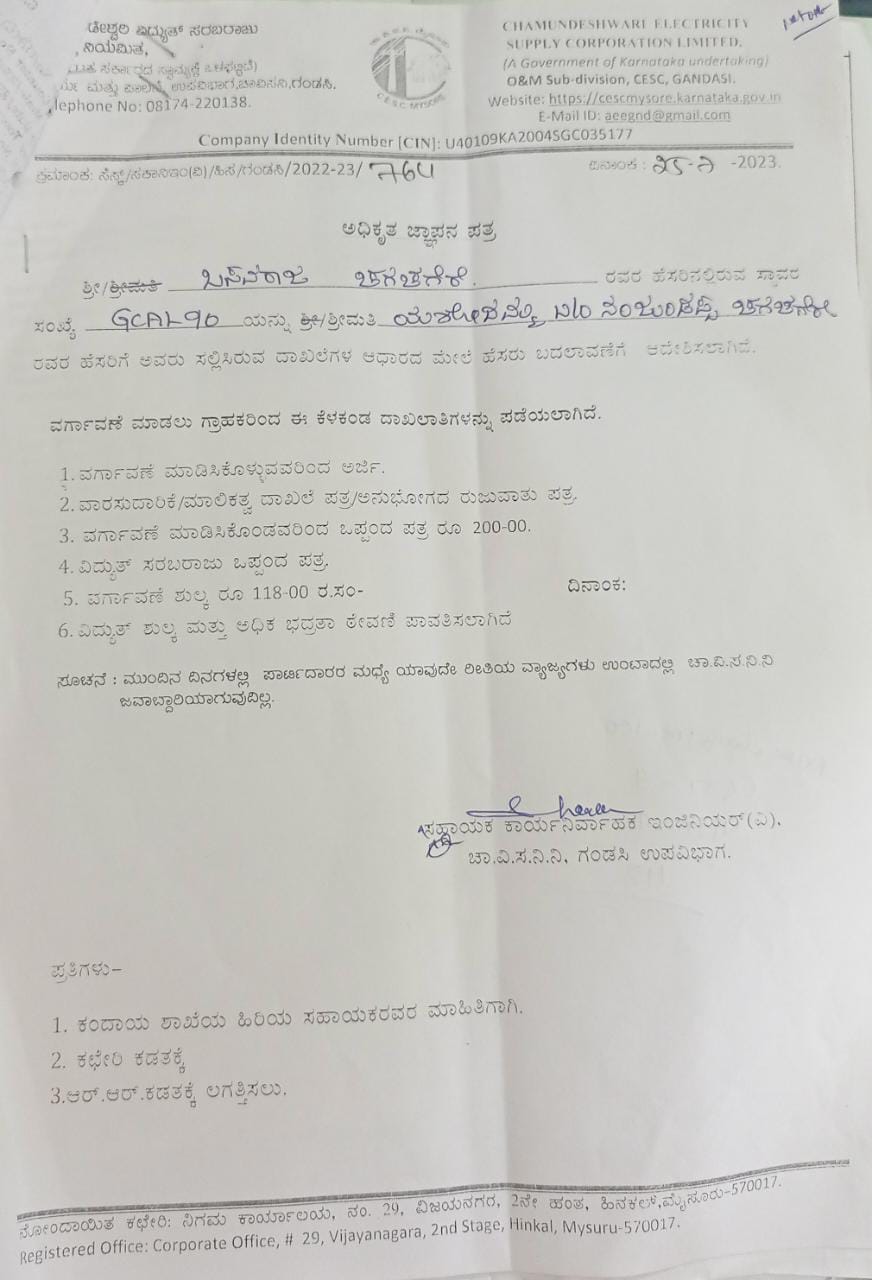 ಡೇಶ್ವರಿ ವಿದ್ಯುತ್ ಸರಬರಾಜು
ನಿಯಮಿತ,
ಸರ್ಕಾರದ ಸ್ವಾಮ್ಯಕ್ಕೆ ಒಳಪಟ್ಟಿದೆ)
ಮತ್ತು ಪಾಲನೆ, ಉಪವಿಭಾಗ,ಚಾವಿಸನಿ,ಗಂಡಸಿ.
lephone No: 08174-220138.
CESC MYSORE
CHAMUNDESHWARI ELECTRICITY
SUPPLY CORPORATION LIMITED.
(A Government of Karnataka undertaking)
O&M Sub-division, CESC, GANDASI.
Website: https://cescmysore.karnataka.gov.in
E-Mail ID: aeegnd@gmail.com
Company Identity Number [CIN]: U40109KA2004SGC035177
ಕ್ರಮಾಂಕ: ಸೆಸ್ಕ್/ಸಕಾನಿಇಂ(ವಿ)/ಹಿಸ/ಗಂಡಸಿ/2022-23/ 764 ದಿನಾಂಕ : 25-7 -2023.
ಅಧಿಕೃತ ಜ್ಞಾಪನ ಪತ್ರ
ಶ್ರೀ/ಶ್ರೀಮತಿ ಬಸವರಾಜ ಚಗಚಗೆರೆ. ರವರ ಹೆಸರಿನಲ್ಲಿರುವ ಸ್ಥಾವರ
ಸಂಖ್ಯೆ GCAL90 ಯನ್ನು ಶ್ರೀ/ಶ್ರೀಮತಿ ಯಶೋದಮ್ಮ ನಂಜುಂಡಪ್ಪ ಚಗಚಗೆರೆ
ರವರ ಹೆಸರಿಗೆ ಅವರು ಸಲ್ಲಿಸಿರುವ ದಾಖಲೆಗಳ ಆಧಾರದ ಮೇಲೆ ಹೆಸರು ಬದಲಾವಣೆಗೆ ಆದೇಶಿಸಲಾಗಿದೆ.
ವರ್ಗಾವಣೆ ಮಾಡಲು ಗ್ರಾಹಕರಿಂದ ಈ ಕೆಳಕಂಡ ದಾಖಲಾತಿಗಳನ್ನು ಪಡೆಯಲಾಗಿದೆ.
1. ವರ್ಗಾವಣೆ ಮಾಡಿಸಿಕೊಳ್ಳುವವರಿಂದ ಅರ್ಜಿ.
2. ವಾರಸುದಾರಿಕೆ/ಮಾಲಿಕತ್ವ ದಾಖಲೆ ಪತ್ರ/ಅನುಭೋಗದ ರುಜುವಾತು ಪತ್ರ.
3. ವರ್ಗಾವಣೆ ಮಾಡಿಸಿಕೊಂಡವರಿಂದ ಒಪ್ಪಂದ ಪತ್ರ ರೂ 200-00.
4. ವಿದ್ಯುತ್ ಸರಬರಾಜು ಒಪ್ಪಂದ ಪತ್ರ.
5. ವರ್ಗಾವಣೆ ಶುಲ್ಕ ರೂ 118-00 ರ.ಸಂ- ದಿನಾಂಕ:
6. ವಿದ್ಯುತ್ ಶುಲ್ಕ ಮತ್ತು ಅಧಿಕ ಭದ್ರತಾ ಠೇವಣಿ ಪಾವತಿಸಲಾಗಿದೆ
ಸೂಚನೆ : ಮುಂದಿನ ದಿನಗಳಲ್ಲಿ ಪಾರ್ಟಿದಾರರ ಮಧ್ಯೆ ಯಾವುದೇ ರೀತಿಯ ವ್ಯಾಜ್ಯಗಳು ಉಂಟಾದಲ್ಲಿ ಚಾ.ವಿ.ಸ.ನಿ.ನಿ
ಜವಾಬ್ದಾರಿಯಾಗುವುದಿಲ್ಲ.
ಸಹಾಯಕ ಕಾರ್ಯನಿರ್ವಾಹಕ ಇಂಜಿನಿಯರ್(ವಿ).
ಚಾ.ವಿ.ಸ.ನಿ.ನಿ, ಗಂಡಸಿ ಉಪವಿಭಾಗ.
ಪ್ರತಿಗಳು-
1. ಕಂದಾಯ ಶಾಖೆಯ ಹಿರಿಯ ಸಹಾಯಕರವರ ಮಾಹಿತಿಗಾಗಿ.
2. ಕಛೇರಿ ಕಡತಕ್ಕೆ
3.ಆರ್.ಆರ್.ಕಡತಕ್ಕೆ ಲಗತ್ತಿಸಲು.
ನೋಂದಾಯಿತ ಕಛೇರಿ: ನಿಗಮ ಕಾರ್ಯಾಲಯ, ನಂ. 29, ವಿಜಯನಗರ, 2ನೇ ಹಂತ, ಹಿನಕಲ್,ಮೈಸೂರು-570017.
Registered Office: Corporate Office, # 29, Vijayanagara, 2nd Stage, Hinkal, Mysuru-570017.